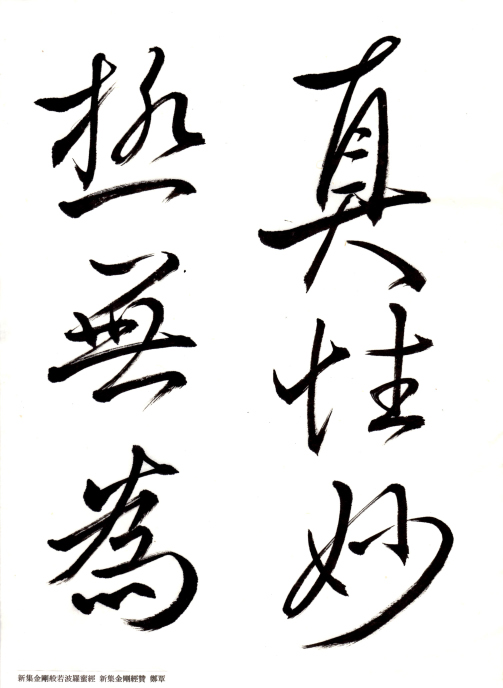 真性妙
極無為
新集金剛般若波羅蜜經 新集金剛經贊 鄭覃